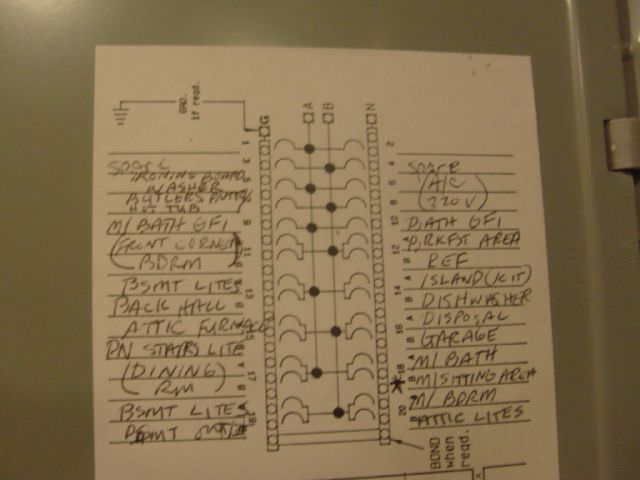 GND. if reqd.
G A B N
1 2
3 4
SPARE SPARE
IRONING BOARD
WASHER 5 (A/C
BUTLERS PANTRY 8 220V)
HOT TUB
M/BATH GFI 9 10 BATH GFI
(FRONT CORNER 11 12 BRKFST AREA
BDRM) REF
A ISLAND (KIT)
BSMT LITES 13 14 B DISHWASHER
BACK HALL A DISPOSAL
ATTIC FURNACE 15 16 B GARAGE
DN STAIRS LITE A 18 A M/BATH
(DINING 17 * B M/SITTING AREA
RM) M/BDRM
BSMT LITES A 20 B ATTIC LITES
BSMT 19
BOND when reqd.